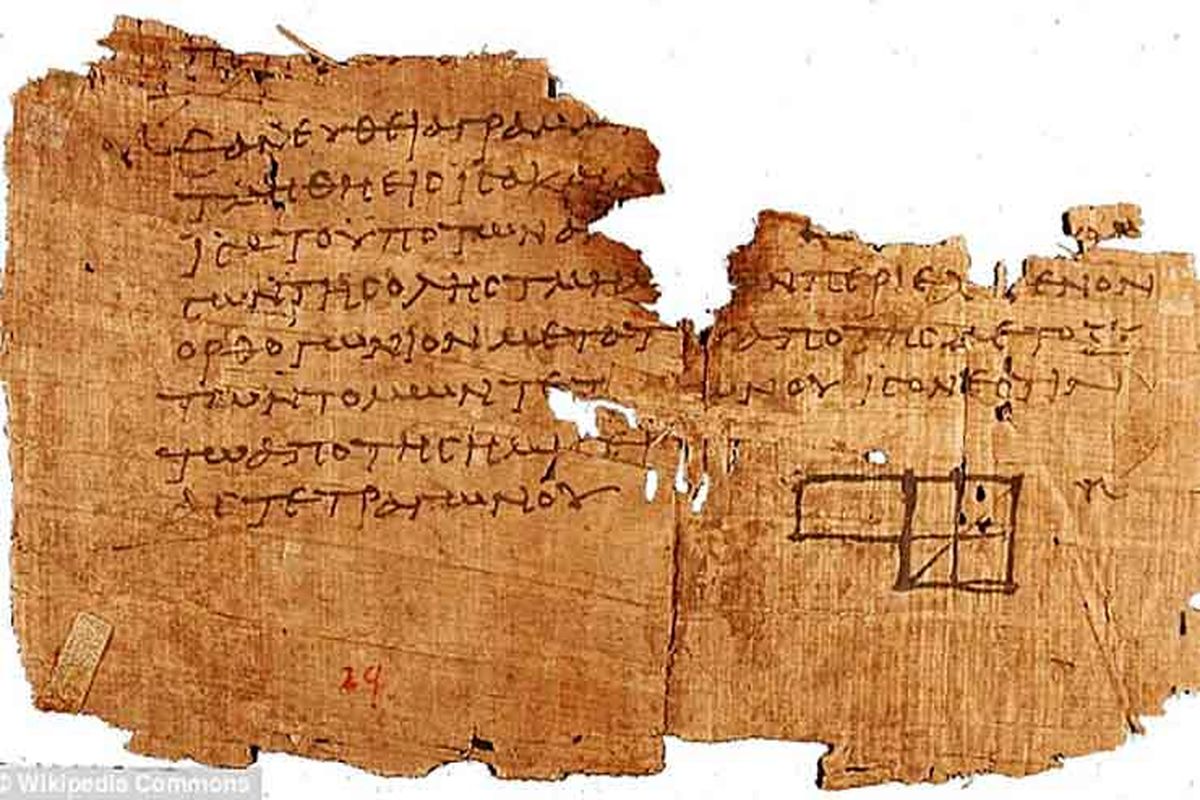 ΕΑΝΕΥΘΕΙΑΓΡΑΜΜ
ΤΜΗΘΗΕΙϹΙϹΑΚΑΙΑ
ΙϹΑΤΟΥΠΟΤΩΝΑ
ϹΩΝΤΗϹΟΛΗϹΤΜΗΜ ΩΝΠΕΡΙΕΧ ΜΕΝΟΝ
ΟΡΘΟΓΩΝΙΟΝΜΕΤΑΤΟΥ ΑΠΟΤΗϹΜΕΤΟΞΥ
ΤΩΝΤΟΜΩΝΤΕΤ ΩΝΟΥ ΙϹΟΝΕϹΤΙΝ
ΤΩΑΠΟΤΗϹΗΜΙ
ΑϹΤΕΤΡΑΓΩΝΟΥ
29
© Wikipedia Commons